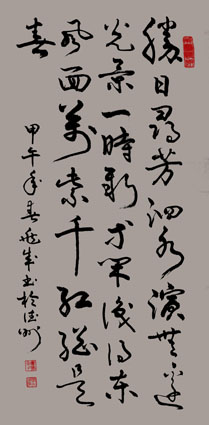 勝日尋芳泗水濱無邊
光景一時新等閒識得東
風面萬紫千紅總是
春
甲午年春書於